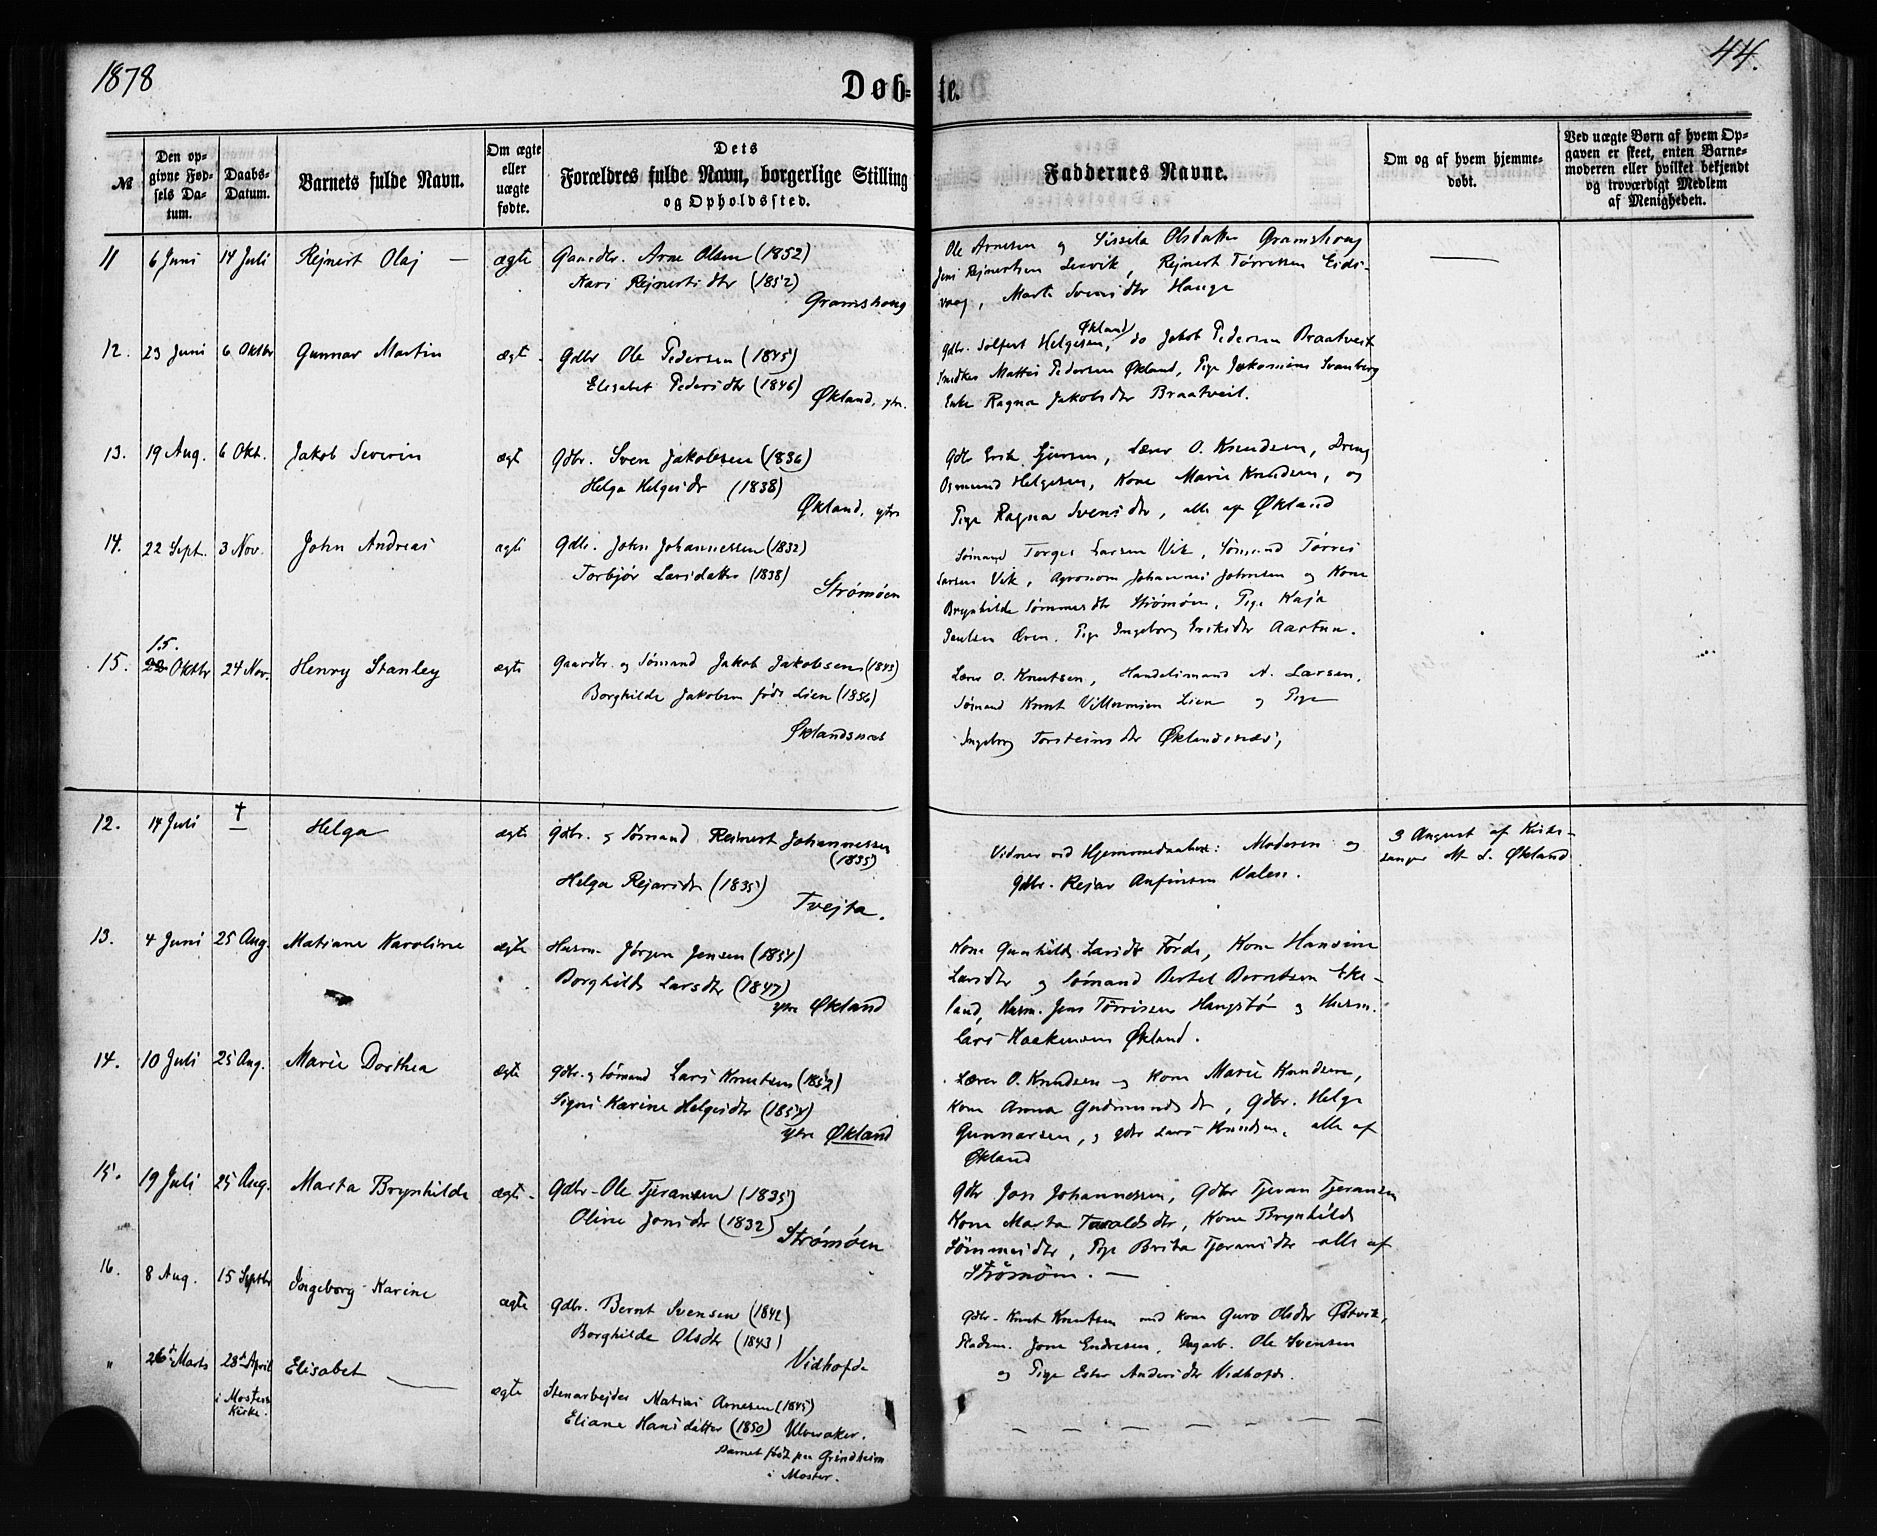 1878
Døb-
te.
44.
№
Den op-
givne Fød-
sels Da-
tum.
Daabs-
Datum.
Barnets fulde Navn.
Om ægte
eller
uægte
fødte.
Dets
Forældres fulde Navn, borgerlige Stilling
og Opholdssted.
Faddernes Navne.
Om og af hvem hjemme-
døbt.
Ved uægte Børn af hvem Op-
gaven er skeet, enten Barne-
moderen eller hvilket bekjendt
og troværdigt Medlem
af Menigheden.
11 6 Juni 14 Juli Rejnert Olaj — ægte Gaardbr. Arne Olsen (1852)
Kari Rejnertsdtr (1852)
Gramshaug
Ole Arnesen og Sissela Olsdatter Gramshaug
Jens Rejnertsen Lesvik, Rejnert Tørresen Eids-
vaag, Marta Svensdtr Hauge
12. 23 Juni 6 Oktbr Gunnar Martin ægte Gdbr Ole Pedersen (1845)
Elisabet Pedersdtr (1846)
Økland, ytr.
Gdbr. Helgesen, Økland do Jakob Pedersen Braatveit
Mattis Pedersen Økland, Pige
Enke Ragna Jakobsdtr Braatveit.
13. 19 Aug. 6 Okt. Jakob Severin ægte Gdbr. Sven Jakobsen (1836)
Helga Helgesdr (1838)
Økland, ytre
Gdbr Erik, Lærer O. Knudsen, Dreng
Osmund Helgesen, Kone Marie Knudsen, og
Pige Ragna Svensdtr, alle af Økland
14. 22 Sept. 3 Nov. John Andreas ægte Gdbr. John Johannessen (1832)
Torbjør Larsdatter (1838)
Strømøen
Sømand Torger Larsen Vik, Sømand Tørres
Larsen Vik, Agronom Johannes Johnsen og Kone
Brynhilde Sømmesdtr Strømøen, Pige Kaja
Pige Ingeborg Eriksdtr Aartun.
15.
15. 22 Oktbr 24 Nov. Henry Stanley ægte Gaardbr. og Sømand Jakob Jakobsen (1843)
Borghilde Jakobsen født Lien (1856)
Øklandsnæs
Lærer O. Knutsen, Handelsmand N. Larsen,
Sømand Knut Villumsen Lien og Pige
Ingeborg Torsteinsdtr Øklandsnæs,
12. 14 Juli † Helga ægte Gdbr. og Sømand Reinert Johannessen
(1835)
Helga Rejarsdtr (1835)
Tvejta.
Vidner ved Hjemmedaaben: Moderen og
Gdbr. Rejar Anfinsen Valen.
3 August af Kirke-
sanger M. S. Økland
13. 4 Juni 25 Aug. Matiane Karoline ægte Husm. Jørgen Jensen (1854)
Borghilde Larsdtr (1847)
ytre Økland
Kone Gunhilde Larsdtr Førde, Kone Hansine
Larsdtr og Sømand Bertel Berntsen Eke-
land, Husm. Jens Tørrisen Haugstø og Husm.
Lars Haakonsen Økland.
14. 10 Juli 25 Aug. Marie Dorthea ægte Gdbr. og Sømand Lars Knutsen (1852)
Signi Karine Helgesdtr (1854)
ytre Økland
Lærer O. Knudsen og Kone Marie Knudsen,
Kone Anna Gudmundsdtr, Gdbr. Helge
Gunnarsen, og Gdbr Lars Knudsen, alle af
Økland
15. 19 Juli 25 Aug. Marta Brynhilde ægte Gdbr. Ole Tjeransen (1835)
Oline Jonsdtr (1832)
Strømøen
Gdbr Jon Johannessen, Gdbr Tjeran Tjeransen
Kone Marta Taraldsdtr, Kone Brynhilde
Sømmesdtr, Pige Brita Tjeransdtr alle af
Strømøen. —
16. 8 Aug. 15 Septbr Ingeborg Karine ægte Gdbr. Bernt Svensen (1842)
Borghilde Olsdtr (1843)
Vidhofde
Gdbr. Knut Knutsen med Kone Guro Olsdtr Østvik,
Jone Endresen, Ungkarl. Ole Svensen
og Pige Ester Andersdtr Vidhofde.
" 26 Marts 28 April Elisabet — ægte Stenarbejder Matias Arnesen (1845)
i Mosters
Kirke.
Eliane Hansdatter (1850) Ulveraker.
Barnet født paa Grindheim
i Moster.